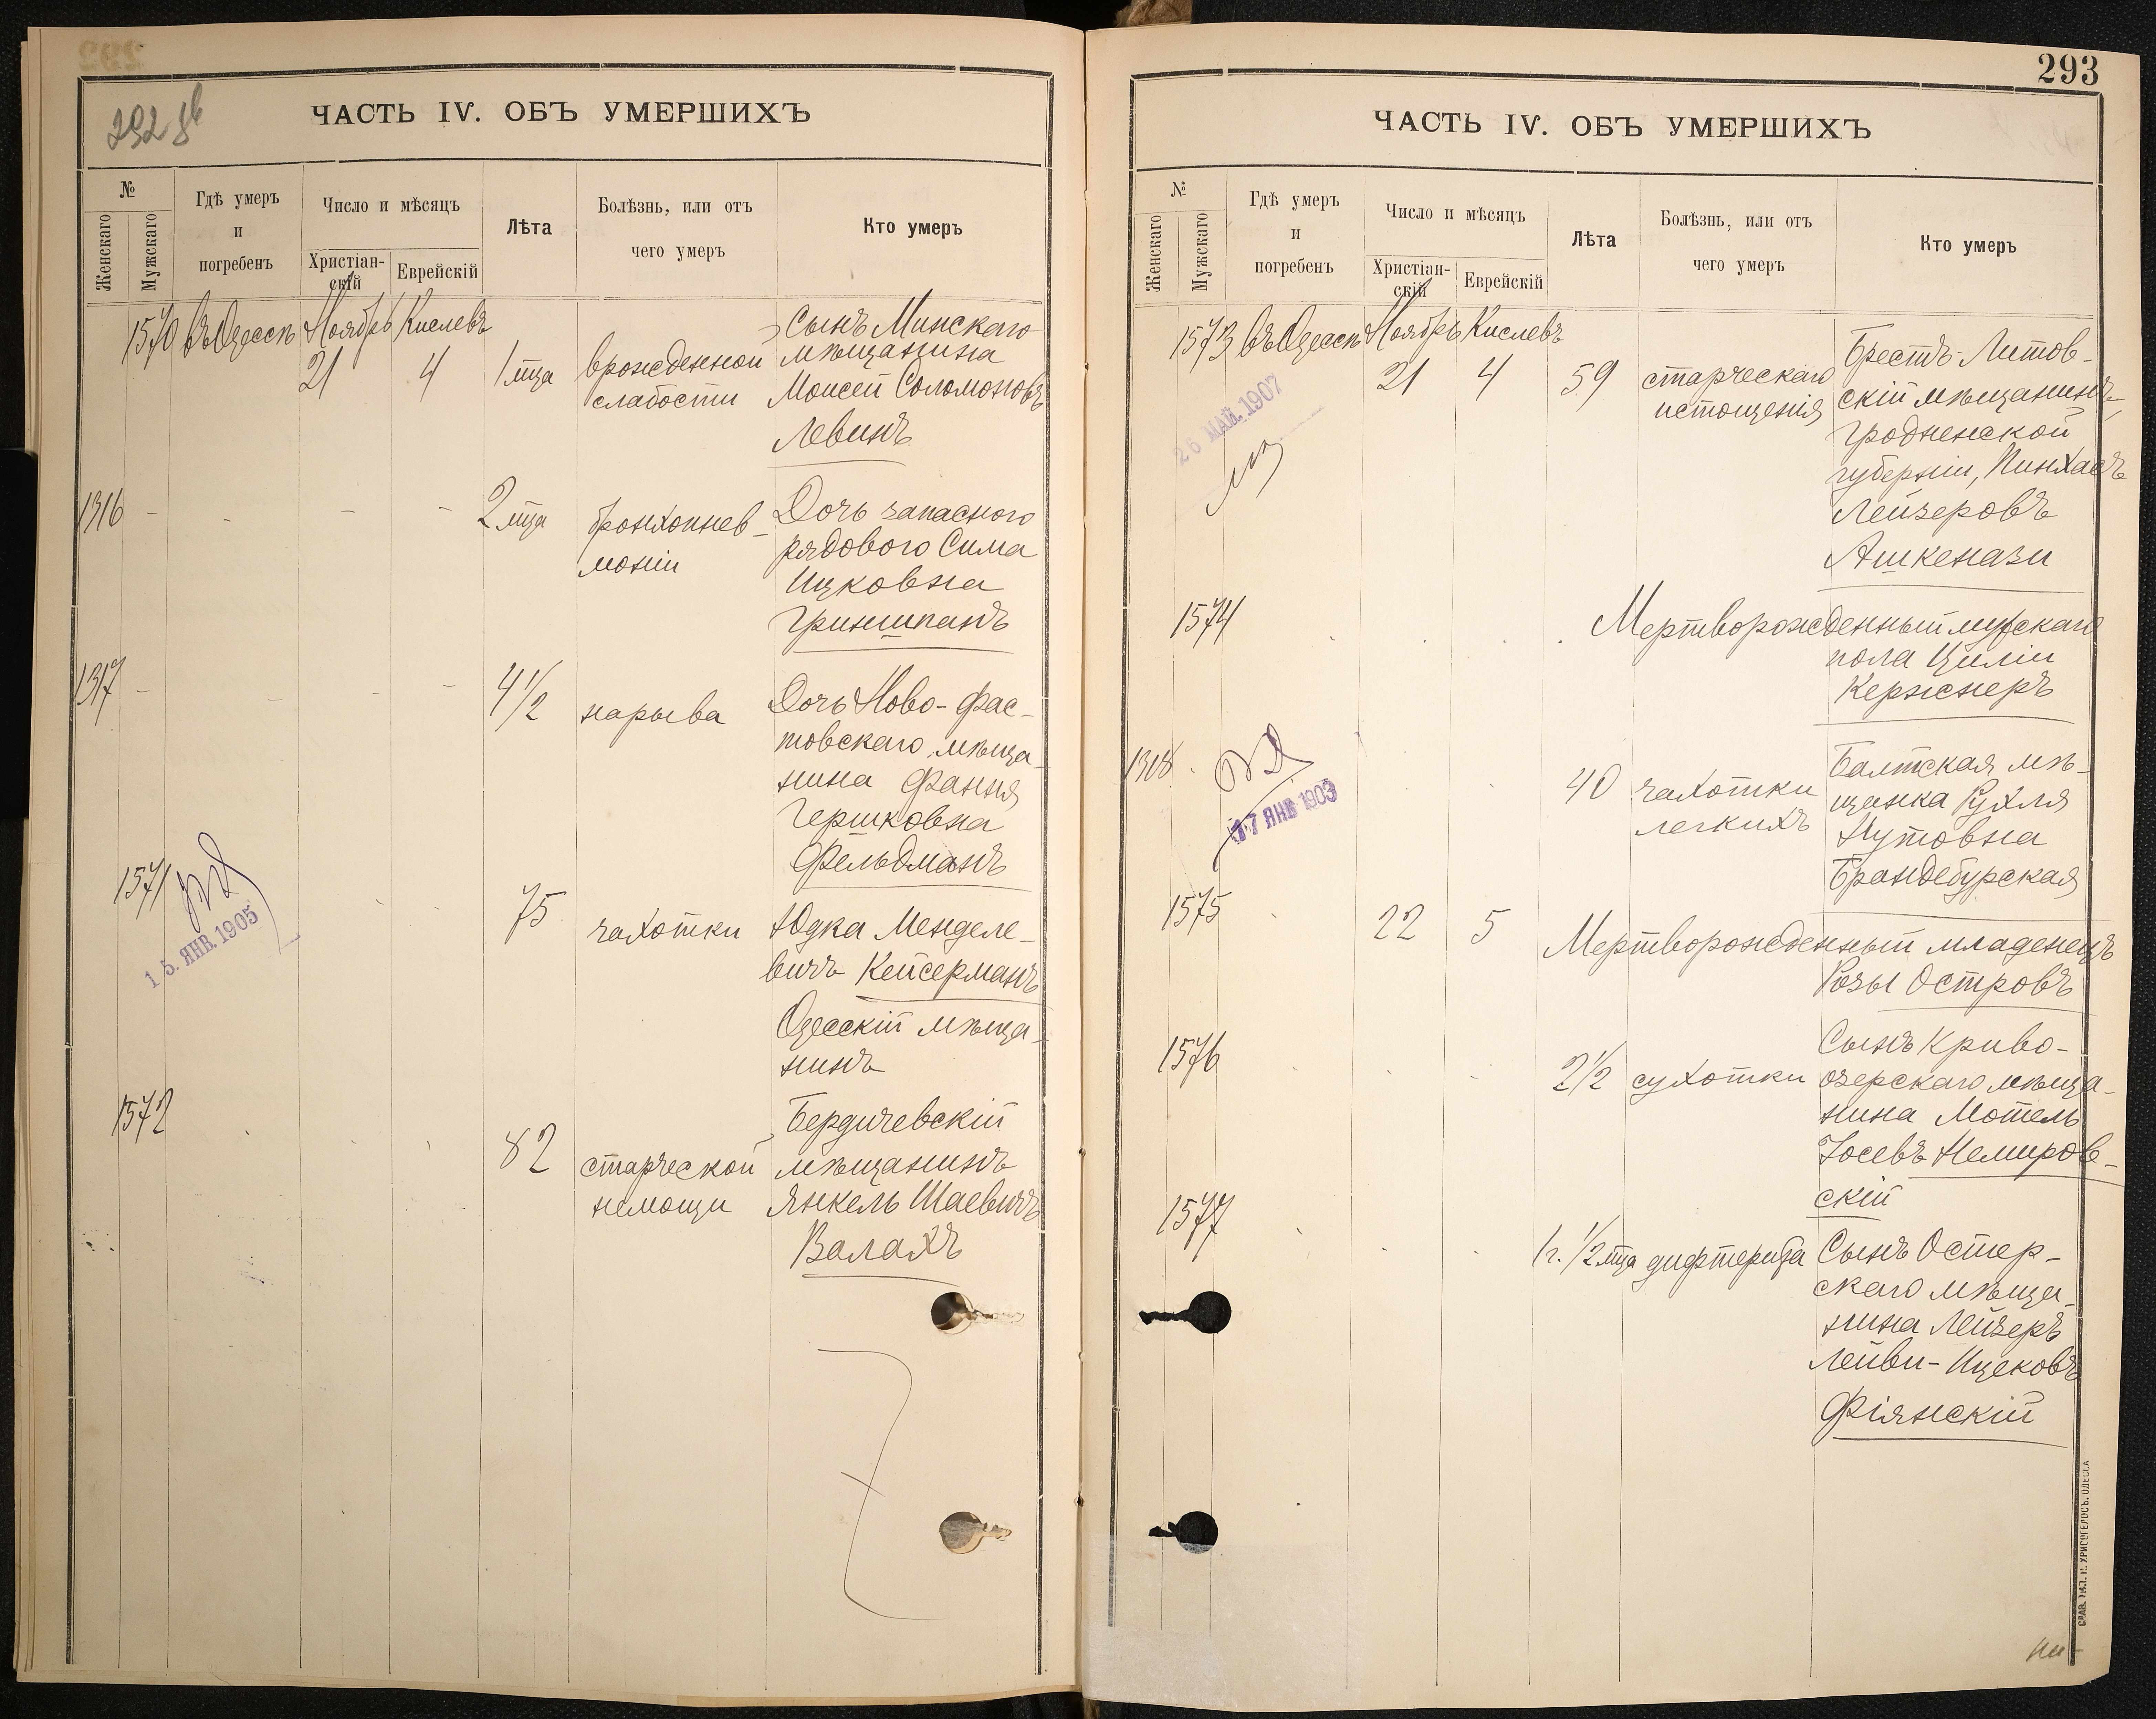 292 об
ЧАСТЬ IV. ОБЪ УМЕРШИХЪ
№
Женскаго
Мужскаго
Гдѣ умеръ
и
погребенъ
Число и мѣсяцъ
Христіан-
скій
Еврейскій
Лѣта
Болѣзнь, или отъ
чего умеръ
Кто умеръ
1570 въ Одессѣ Ноябрь Кислевъ
21 4 1 мца врожденной слабости
Сынъ Минскаго
мѣщанина
Моисей Соломоновъ
Левинъ
1316 - - - - 2 мца бронхопнев-
моніи
Дочь запасного
рядового Сима
Ицковна
Гриншпанъ
1317 - - - - 4 1/2 нарыва
Дочь Ново-Фас-
товскаго мѣща-
нина Фання
Гершковна
Фельдманъ
1571
15. ЯНВ. 1905
75 чахотки
Юдка Менделе-
вичъ Кейсерманъ
Одесскій мѣща-
нинъ
1572 82 старческой
немощи
Бердичевскій
мѣщанинъ
Янкель Шаевичъ
Валахъ
293
ЧАСТЬ IV. ОБЪ УМЕРШИХЪ
№
Женскаго
Мужскаго
Гдѣ умеръ
и
погребенъ
Число и мѣсяцъ
Христіан-
скій
Еврейскій
Лѣта
Болѣзнь, или отъ
чего умеръ
Кто умеръ
1573 въ Одессѣ Ноябрь Кислевъ
21 4 59 старческаго
истощенія
26 МАЙ. 1907
Брестъ-Литов-
скій мѣщанинъ,
Гродненской
губерніи, Пинхасъ
Лейзеровъ
Ашкенази
1574 Мертворожденный мужскаго
пола Циліи
Кержнеръ
1318
17 ЯНВ 1903
40 чахотки
легкихъ
Балтская мѣ-
щанка Рухля
Нутовна
Брандебурская
1575 22 5 Мертворожденный младенецъ
Розы Островъ
1576 2 1/2 сухотки
Сынъ Криво-
озерскаго мѣща-
нина Мотель
Іосевъ Немиров-
скій
1577 1 г. 1/2 мца дифтерита
Сынъ Остер-
скаго мѣща-
нина Лейзеръ
Лейви-Ицековъ
Фіянскій
СЛАВ. ТИП. Н. ХРИСОГЕЛОСЪ. ОДЕССА